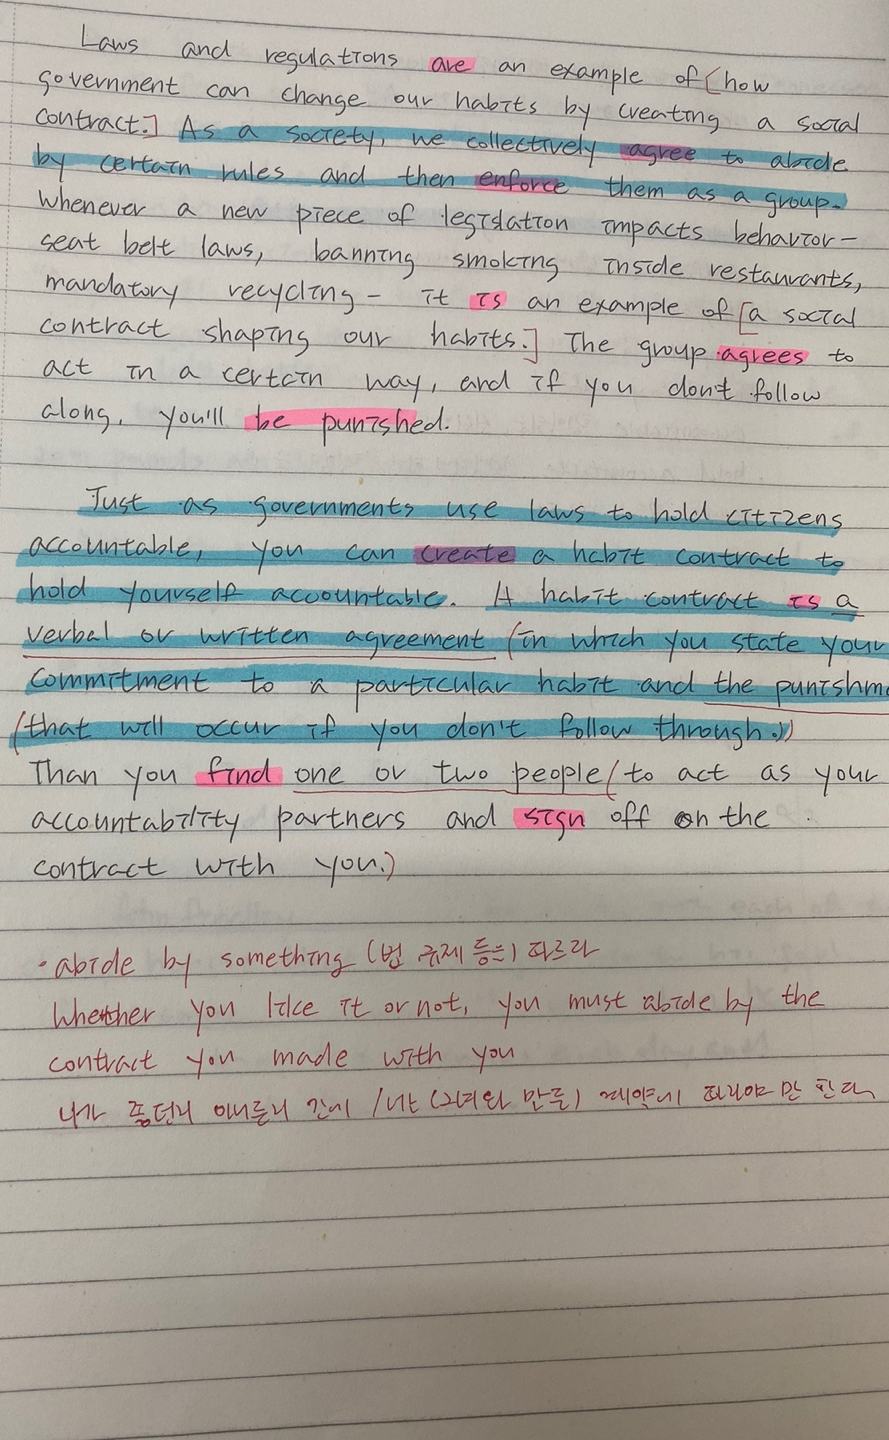 Laws and regulations are an example of [how
government can change our habits by creating a social
contract.] As a society, we collectively agree to abide
by certain rules and then enforce them as a group.
Whenever a new piece of legislation impacts behavior-
seat belt laws, banning smoking inside restaurants,
mandatory recycling - it is an example of [a social
contract shaping our habits.] The group agrees to
act in a certain way, and if you don't follow
along, you'll be punished.
Just as governments use laws to hold citizens
accountable, you can create a habit contract to
hold yourself accountable. A habit contract is a
verbal or written agreement (in which you state your
commitment to a particular habit and the punishme
(that will occur if you don't follow through.))
Than you find one or two people (to act as your
accountability partners and sign off on the
contract with you.)
• abide by something (법 규제 등을) 따르라
Whether you like it or not, you must abide by the
contract you made with you
간에 / 너는 (그녀와 만든) 계약에 따라야 만 한다